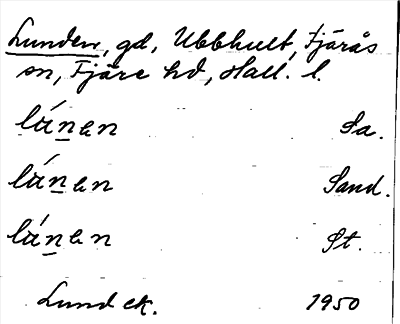 Lunden, gd, Ubbhult, Fjärås
sn, Fjäre hd, Hall. l.
lúnen Sa.
lúnen Sand.
lúnen St.
Lund ek. 1950